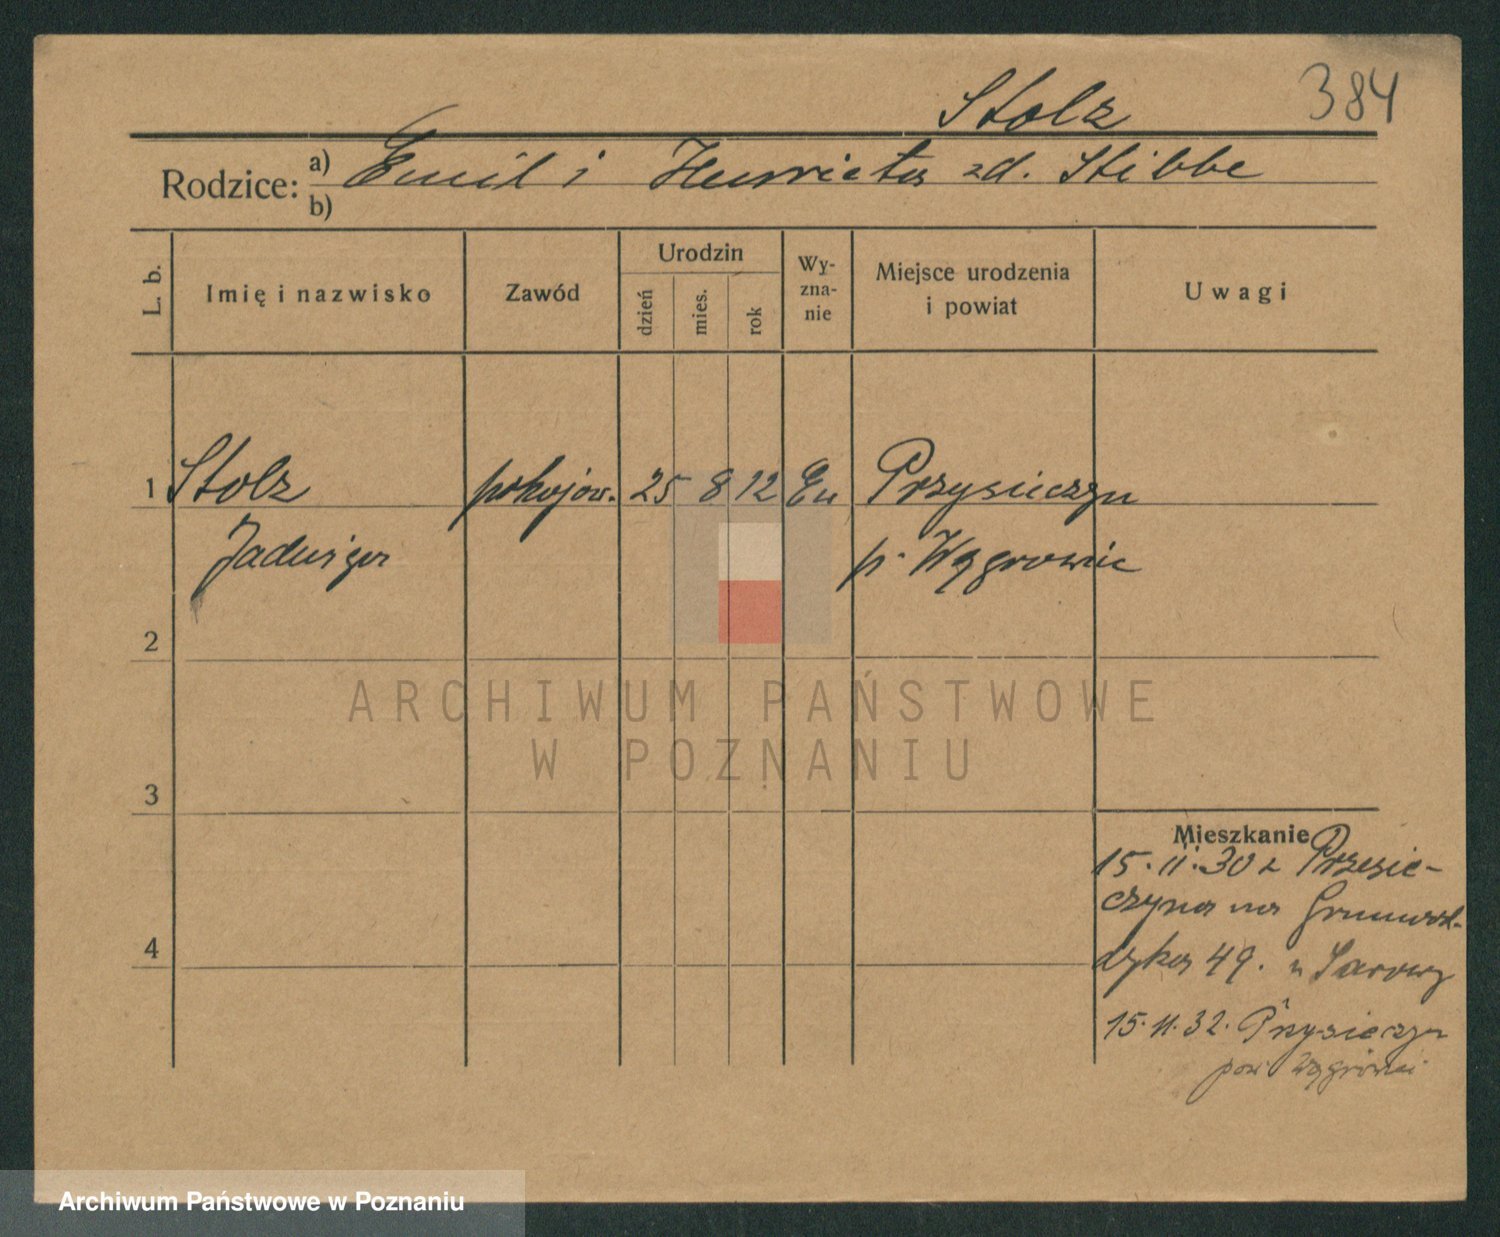 384
Stolz
Rodzice: a) Emil i Henrieta zd. Stibbe
b)
L. b.
Imię i nazwisko
Zawód
Urodzin
dzień
mies.
rok
Wy-
zna-
nie
Miejsce urodzenia
i powiat
Uwagi
1 Stolz pokojow. 25 8 12 Ew Przysieczyn
Jadwiga p. Wągrowic
2
ARCHIWUM PAŃSTWOWE
W POZNANIU
3
Mieszkanie
15.11.30 z Przesie-
czyna na Grunwal-
dzka 49. u
4
15.11.32. Przysieczyn
pow Wągrowiec
Archiwum Państwowe w Poznaniu